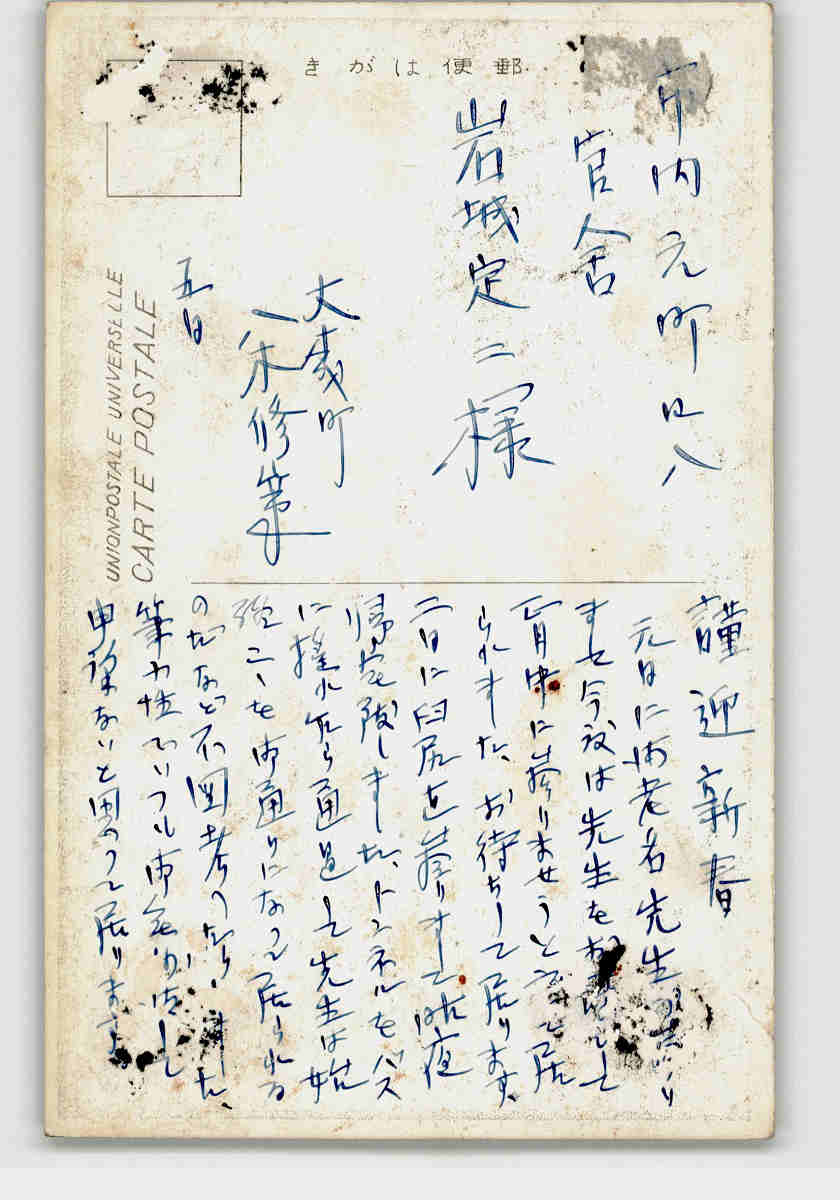 きがは便郵
市内元町
官舎
岩城定二様
八木修
五日
UNIONPOSTALE UNIVERSELLE
CARTE POSTALE
謹迎新春
元日に海老名先生
ませ今度は先生をお
正月中に参りませうと云って居
られました、お待ちして居ります、
二日に臼尻を参りまして昨夜
帰宅致しました、トンネルをバス
に揺れ乍ら通過して先生は始
こゝを御通りになって居られる
のだなど不図考へ ました、
筆不性でいつも御無沙汰し
申訳ないと思って居ります